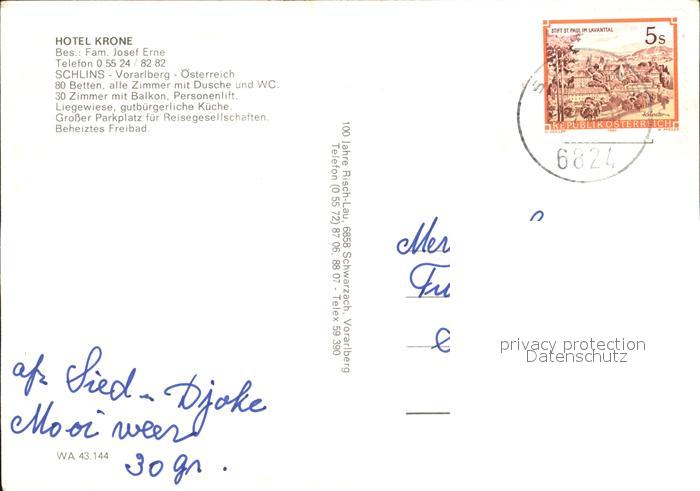 HOTEL KRONE
Bes.: Fam. Josef Erne
Telefon 0 55 24 / 82 82
SCHLINS - Vorarlberg - Österreich
80 Betten, alle Zimmer mit Dusche und WC.
30 Zimmer mit Balkon, Personenlift.
Liegewiese, gutbürgerliche Küche.
Großer Parkplatz für Reisegesellschaften.
Beheiztes Freibad.
100 Jahre Risch-Lau, 6858 Schwarzach, Vorarlberg
Telefon (0 55 72) 87 06, 88 07 - Telex 59 390
STIFT ST. PAUL IM LAVANTTAL
5s
REPUBLIK ÖSTERREICH
6824
Mer
Fu
privacy protection
Datenschutz
afz Sied - Djoke
Mooi weer
30 gr.
WA 43.144